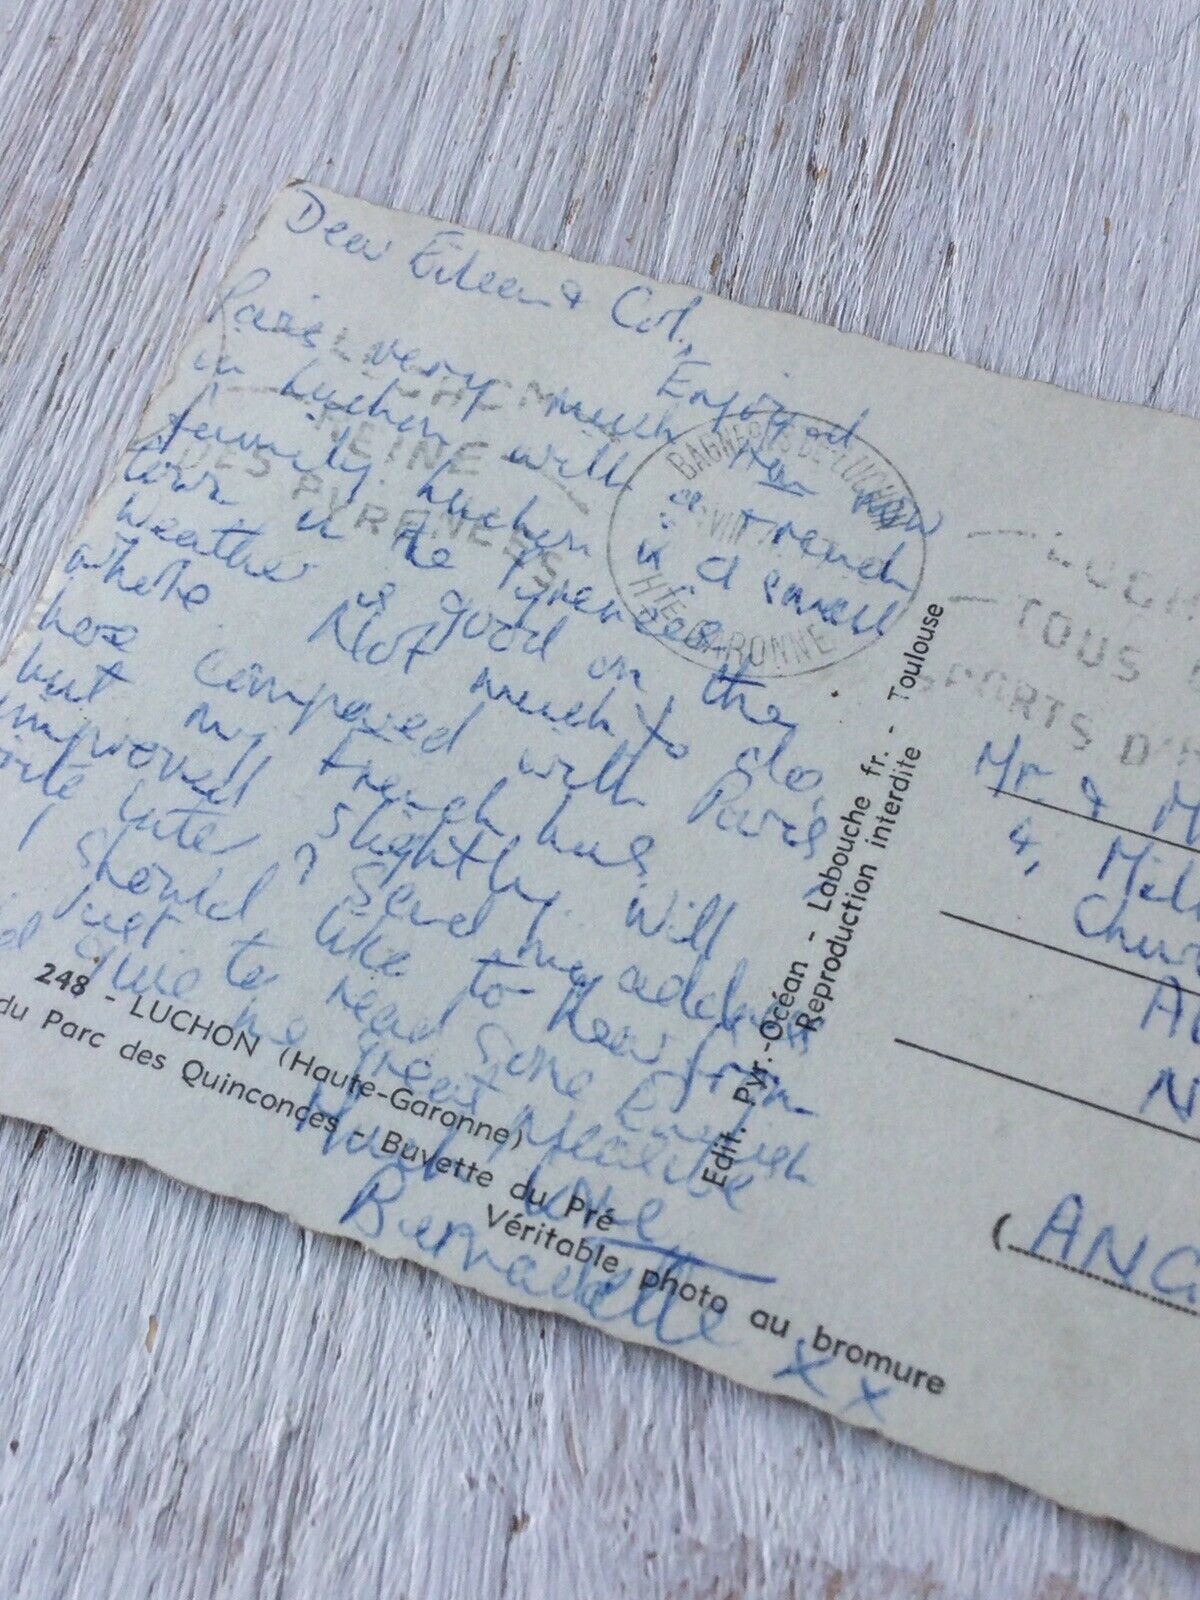 Dear Eileen & Col,
Enjoyed
Paris very much. Am now
in Luchon with a French
family. Luchon is a small
town in the Pyrenees.
Weather is good on the
whole. Not much to do
here compared with Paris,
but my French has
improved slightly. Will
write later & send my address
I should like to hear from
just to read some English
give me great pleasure
Much love
Bernadette xx
LUCHON
REINE
DES PYRENEES
BAGNERES DE LUCHON
HTE GARONNE
LUCH
TOUS
SPORTS D'
248 - LUCHON (Haute-Garonne)
du Parc des Quinconces - Buvette du Pré
Véritable photo au bromure
Edit. Pyr.-Océan - Labouche fr. - Toulouse
Reproduction interdite
Mr. & M
4, Mil
Chur
A
N
(ANG